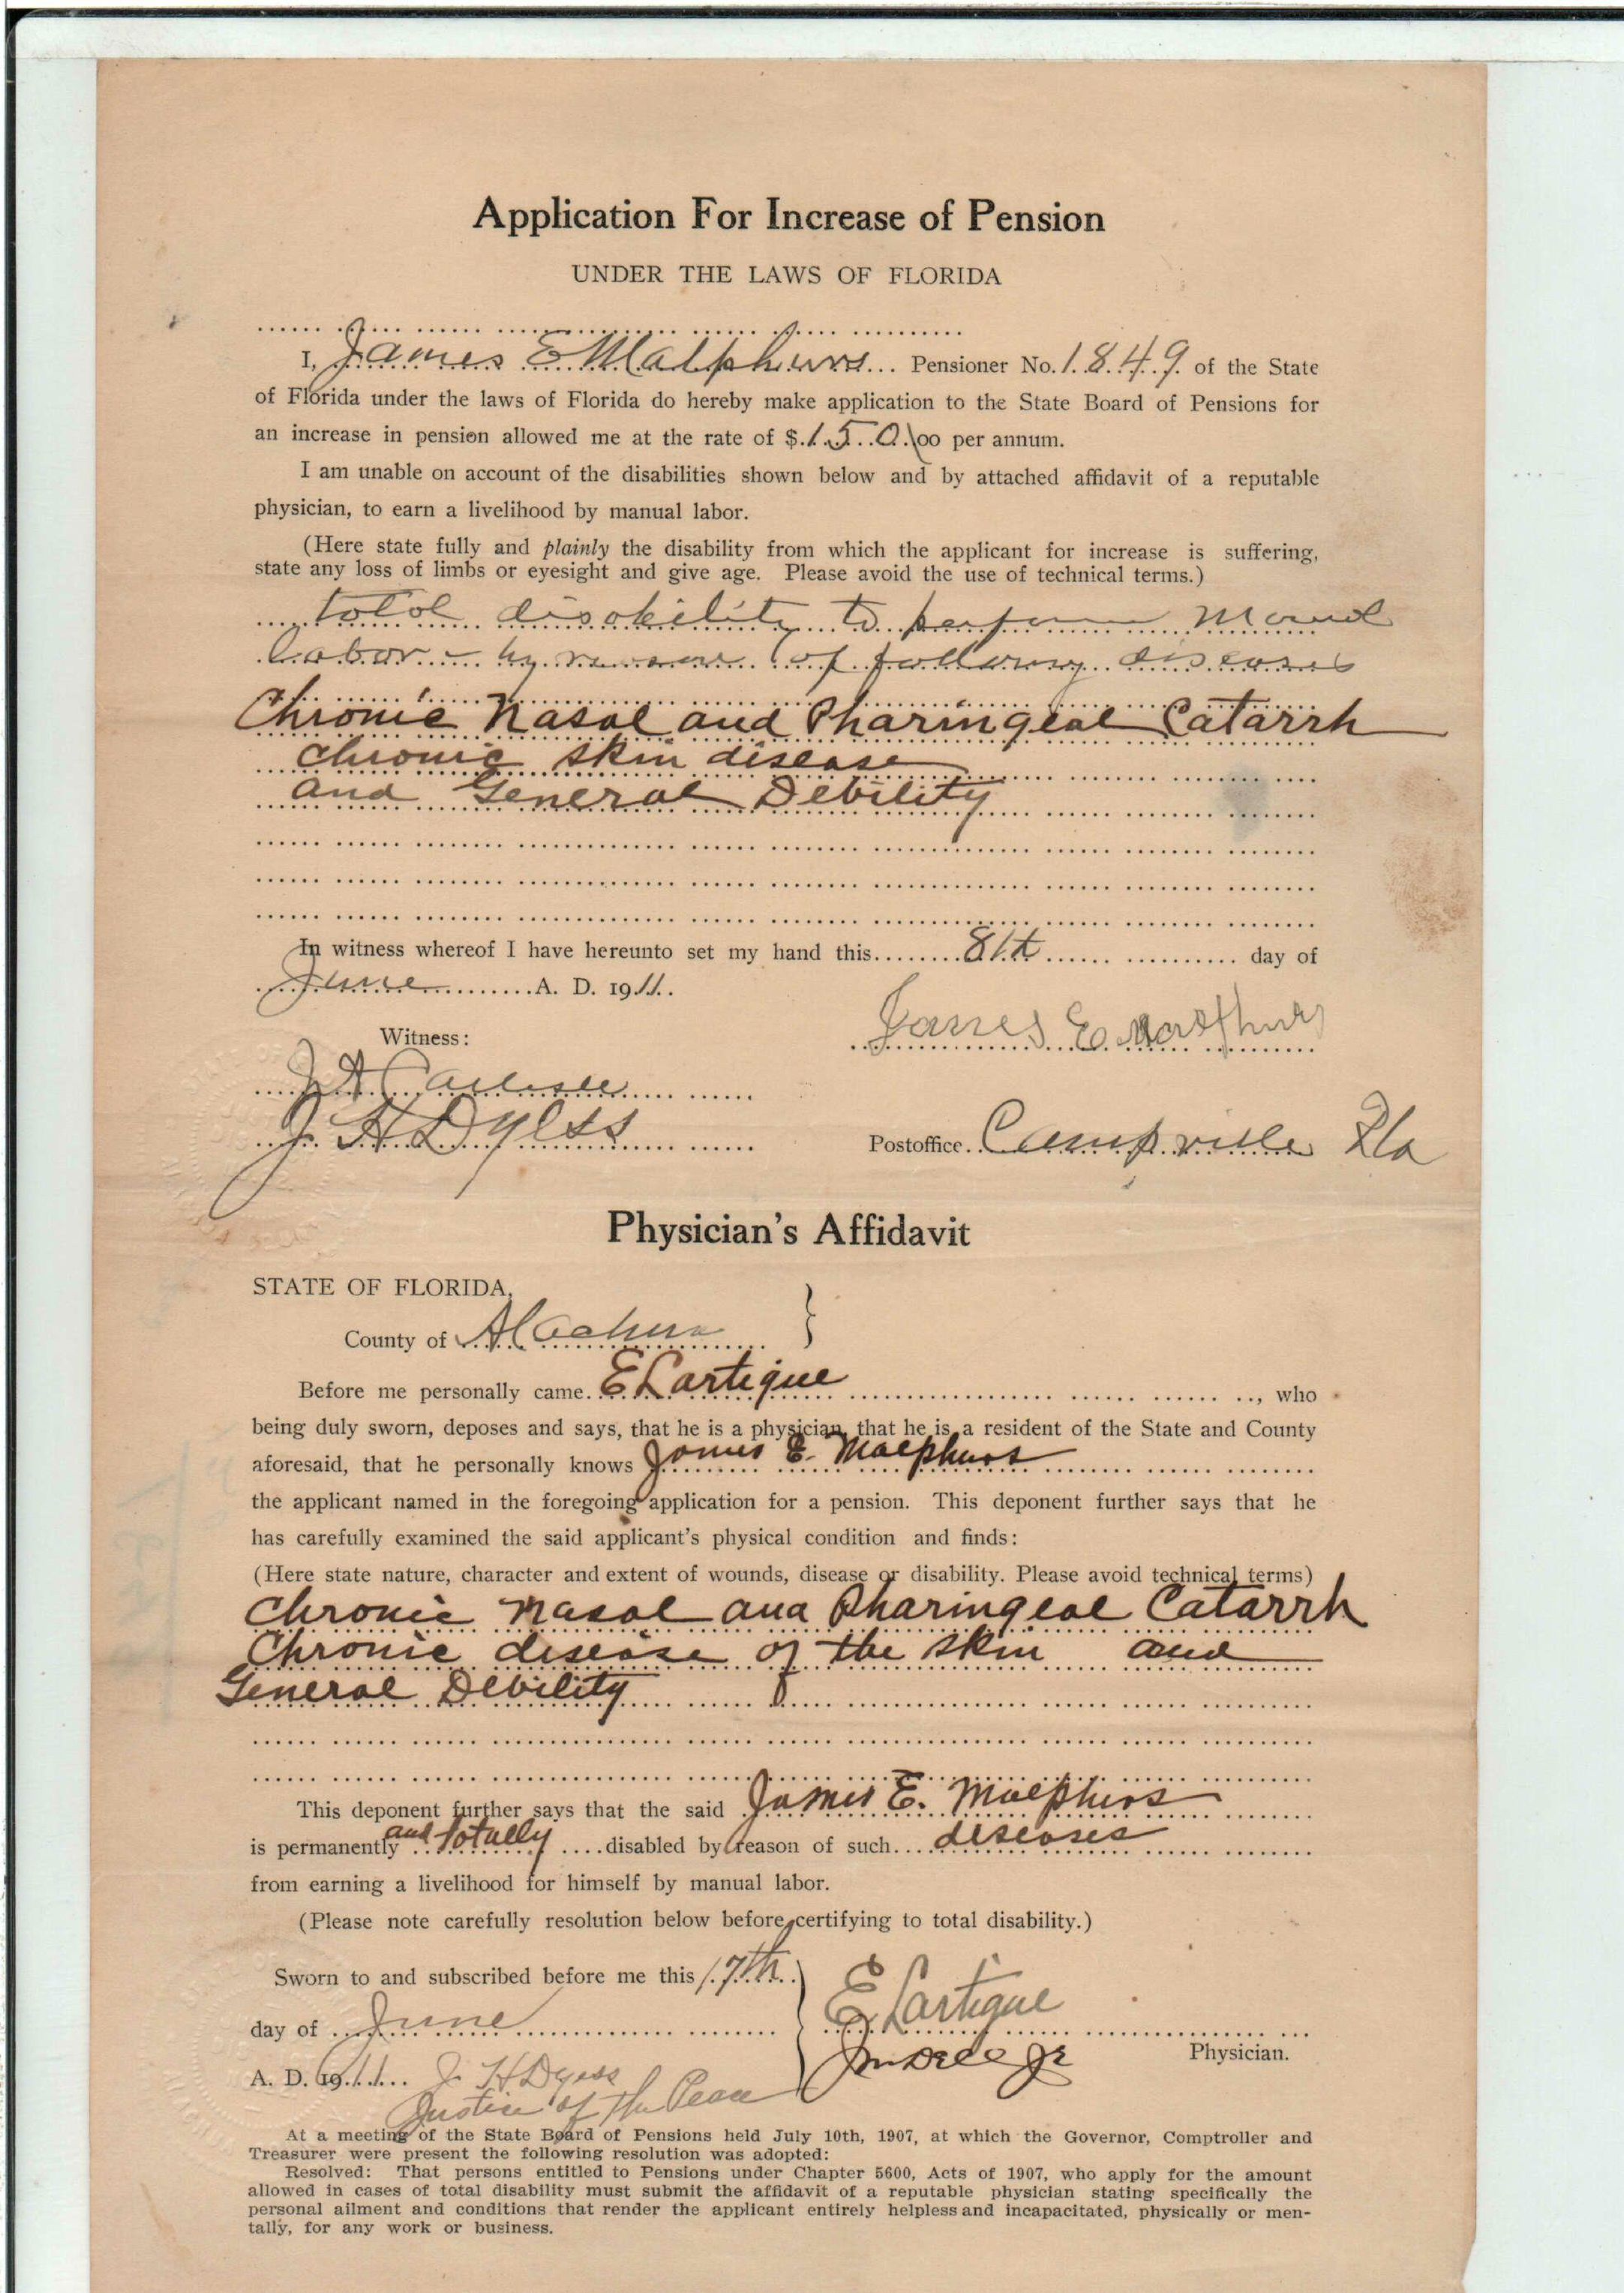 Application For Increase of Pension
UNDER THE LAWS OF FLORIDA
I, James E Malphurs Pensioner No. 1849 of the State
of Florida under the laws of Florida do hereby make application to the State Board of Pensions for
an increase in pension allowed me at the rate of $ 150.00 per annum.
I am unable on account of the disabilities shown below and by attached affidavit of a reputable
physician, to earn a livelihood by manual labor.
(Here state fully and plainly the disability from which the applicant for increase is suffering,
state any loss of limbs or eyesight and give age. Please avoid the use of technical terms.)
total disability to perform manual
labor - by reason of following diseases
Chronic Nasal and Pharingeal Catarrh
chronic skin disease
and General Debility
In witness whereof I have hereunto set my hand this 8th day of
June A. D. 1911.
Witness:
James E.
J H Dyess
Postoffice Campville Fla
Physician's Affidavit
STATE OF FLORIDA,
County of Alachua
Before me personally came E Lartigue, who
being duly sworn, deposes and says, that he is a physician, that he is a resident of the State and County
aforesaid, that he personally knows James E. Malphurs
the applicant named in the foregoing application for a pension. This deponent further says that he
has carefully examined the said applicant's physical condition and finds:
(Here state nature, character and extent of wounds, disease or disability. Please avoid technical terms)
Chronic nasal and Pharingeal Catarrh
Chronic disease of the skin and
General Debility
This deponent further says that the said James E. Malphurs
is permanently and totally disabled by reason of such diseases
from earning a livelihood for himself by manual labor.
(Please note carefully resolution below before certifying to total disability.)
Sworn to and subscribed before me this 17th
day of June
E Lartigue
Physician.
A. D. 1911 J H Dyess
Justice of the Peace
At a meeting of the State Board of Pensions held July 10th, 1907, at which the Governor, Comptroller and
Treasurer were present the following resolution was adopted:
Resolved: That persons entitled to Pensions under Chapter 5600, Acts of 1907, who apply for the amount
allowed in cases of total disability must submit the affidavit of a reputable physician stating specifically the
personal ailment and conditions that render the applicant entirely helpless and incapacitated, physically or men-
tally, for any work or business.